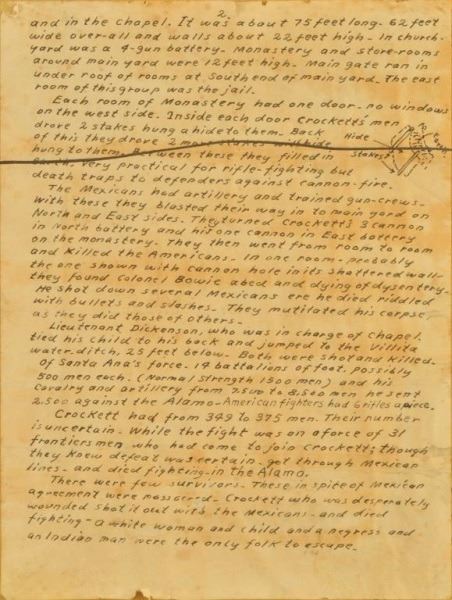 2.
and in the chapel. It was about 75 feet long - 62 feet
wide over-all and walls about 22 feet high - In church-
yard was a 4-gun battery - Monastery and store-rooms
around main yard were 12 feet high - Main gate ran in
under roof of rooms at South end of main yard - The east
room of this group was the jail -
Each room of Monastery had one door - no windows
on the west side - Inside each door Crockett's men
drove 2 stakes hung a hide to them - Back
of this they drove 2 more stakes with hide
Hide
hung to them. Between these they filled in
Stakes
Earth, very practical for rifle-fighting but
death traps to defenders against cannon-fire.
The Mexicans had artillery and trained gun-crews -
with these they blasted their way in to main yard on
North and East sides. They turned Crockett's 3 cannon
in North battery and his one cannon in East battery
on the monastery. They then went from room to room
and killed the Americans - In one room - probably
the one shown with cannon hole in its shattered wall -
they found Colonel Bowie abed and dying of dysentery -
He shot down several Mexicans ere he died riddled
with bullets and slashes - They mutilated his corpse,
as they did those of others -
Lieutenant Dickenson, who was in charge of chapel,
tied his child to his back and jumped to the Villita
water-ditch, 25 feet below - Both were shot and killed -
Of Santa Ana's force - 14 battalions of foot, possibly
500 men each, (Normal strength 1500 men) and his
Cavalry and artillery from 7,500 to 8,500 men he sent
2,500 against the Alamo - American fighters had 6 rifles apiece.
Crockett had from 349 to 375 men. Their number
is uncertain - While the fight was on a force of 31
frontiersmen who had come to join Crockett; though
they knew defeat was certain - got through Mexican
lines - and died fighting - in the Alamo.
There were few survivors - These in spite of Mexican
agreement were massacred - Crockett who was desperately
wounded shot it out with the Mexicans - and died
fighting - a white woman and child and a negress and
an Indian man were the only folk to escape -